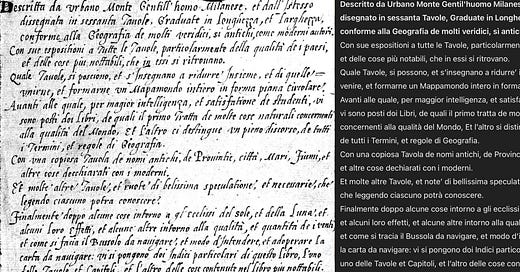 Descritta da Urbano Monte Gentil'huomo Milanese, et dall'istesso
disegnata in sessanta Tavole, Graduate in Longhezza, et Larghezza,
conforme alla Geografia de molti veridici, sì antichi, come moderni autori.
Con sue espositioni a tutte le Tavole, particolarmente della qualità de i paesi,
et delle cose più notabili, che in essi si ritrovano.
Quale Tavole, si possono, et s'insegnano a ridurre insieme, et di quelle
venirne, et formarne un Mapamondo intiero in forma piana circolare.
Avanti alle quale, per maggior intelligenza, et satisfatione de studenti, vi
sono posti doi Libri, de quali il primo tratta de molte cose naturali concernenti
alla qualità del Mondo, Et l'altro ci distingue un pieno discorso, de tutti
i Termini, et regole di Geografia.
Con una copiosa Tavola de nomi antichi, de Provintie, città, Mari, Fiumi, et
altre cose decchiarati con i moderni.
Et molte altre Tavole, et ruote di bellissima speculatione, et necessarie, che
legendo ciascuno potrà conoscere.
Finalmente doppo alcune cose intorno a gl'ecclissi del sole, et della Luna, et
alcuni loro effetti, et alcune altre intorno alla qualità, et quantità de i venti
et come si facia il Bussolo da navigare, et modo d'intendere, et adoperare la
carta da navigare: vi si pongono doi Indici particolari di questo libro, l'uno
delle Tavole et Capitoli, et l'altro delle cose contenute nel libro più notabili.
Descritto da Urbano Monte Gentil'huomo Milanes
disegnato in sessanta Tavole, Graduate in Longhe
conforme alla Geografia de molti veridici, sì antic
Con sue espositioni a tutte le Tavole, particolarmen
et delle cose più notabili, che in essi si ritrovano.
Qualе Tavole, si possono, et s'insegnano a ridurre' i
venire, et formarne un Mapamondo intero in forma
Avanti alle quale, per maggior intelligenza, et satisfa
vi sono posti doi Libri, de quali il primo tratta de mo
concernenti alla qualità del Mondo, Et l'altro si distin
de tutti i Termini, et regole di Geografia.
Con una copiosa Tavola de nomi antichi, de Provinc
et altre cose dechiarati con i moderni.
Et molte altre Tavole, et note' di bellissima speculat
che leggendo ciascuno potrà conoscere.
Finalmente doppo alcune cose intorno a gli ecclissi
et alcuni loro effetti, et alcune altre intorno alla qua
et come si tracia il Bussola da navigare, et modo d'i
la carta da navigare: vi si pongono doi Indici partico
uno delle Tavole et Capitoli, et l'altro delle cose con